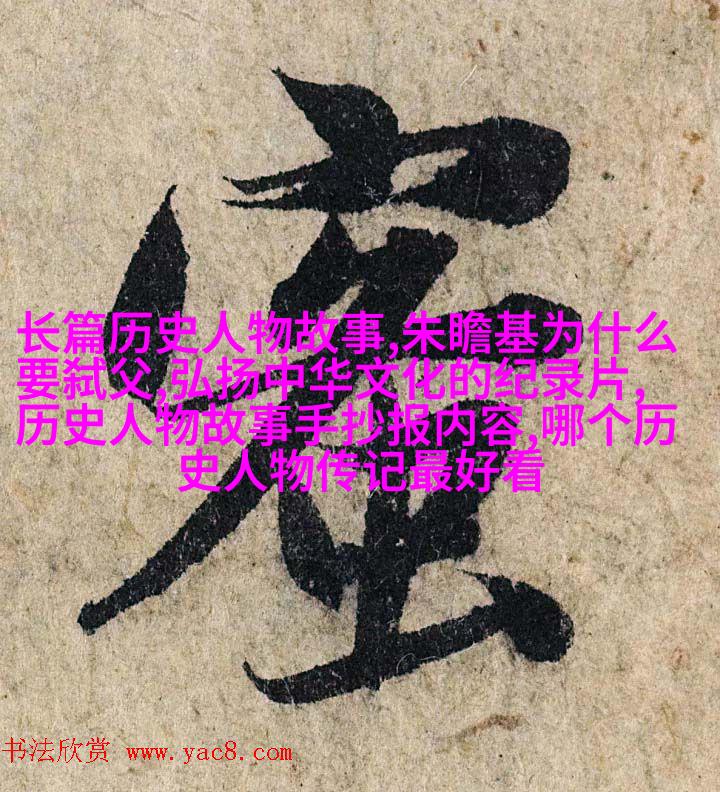 长篇历史人物故事,朱瞻基为什么
要弑父,弘扬中华文化的纪录片,
历史人物故事手抄报内容,哪个历
史人物传记最好看
书法欣赏 www.yac8.com